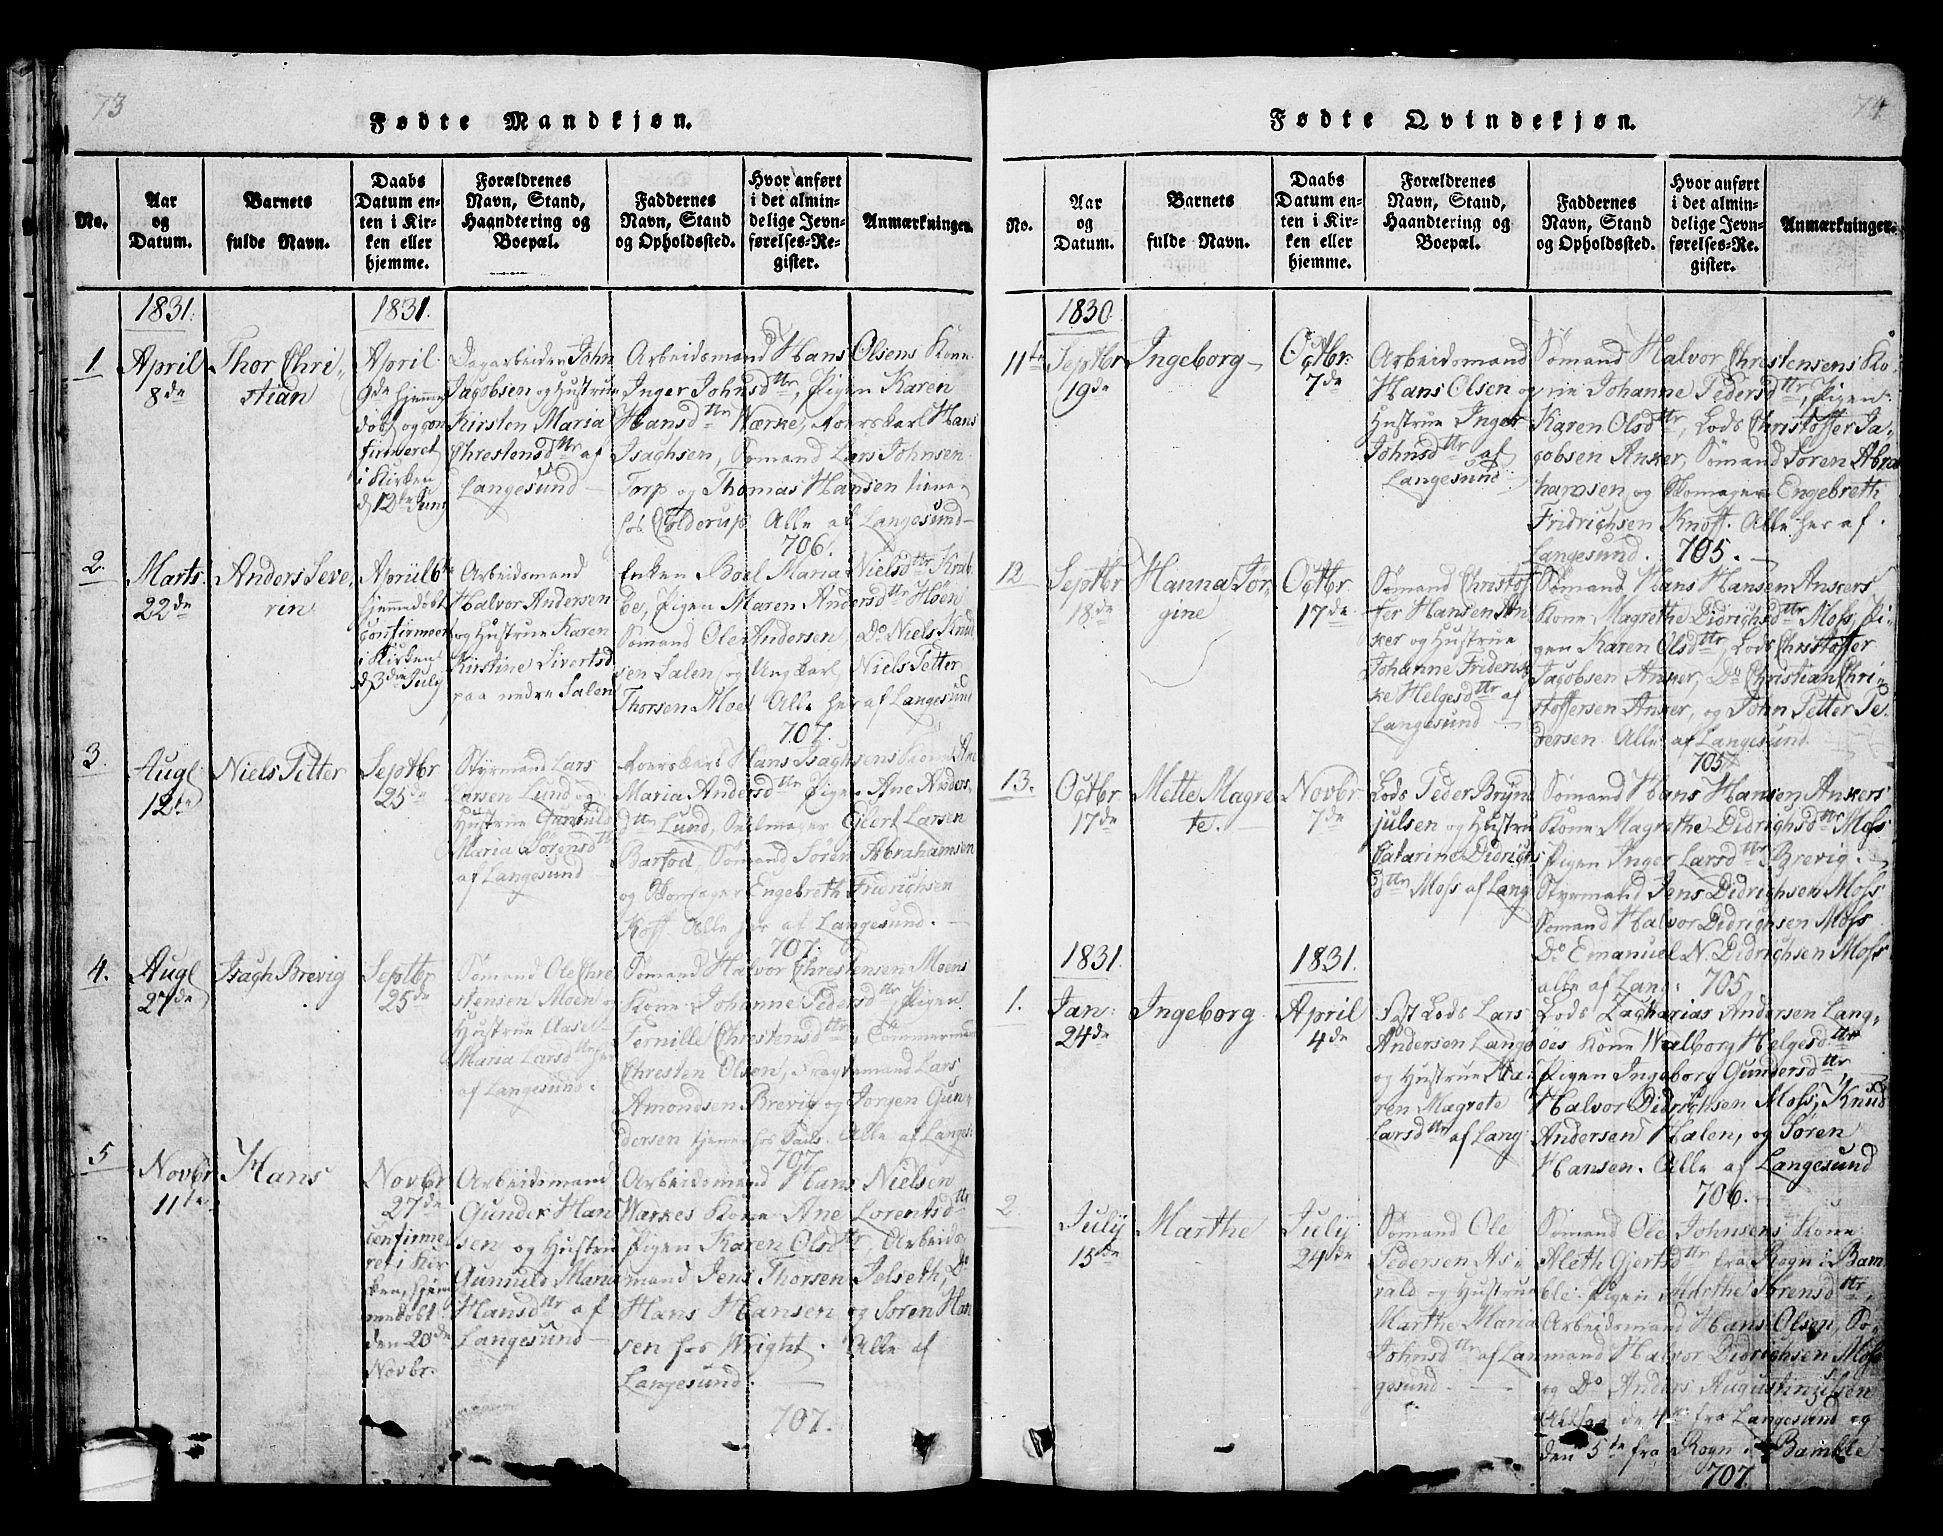 73
Fødte Mandkjøn.
No.
Aar
og
Datum.
Barnets
fulde Navn.
Daabs
Datum en-
ten i Kir-
ken eller
hjemme.
Forældrenes
Navn, Stand,
Haandtering og
Boepæl.
Faddernes
Navn, Stand
og Opholdssted.
Hvor anført
i det almin-
delige Jevn-
førelses-Re-
gister.
Anmærkninger.
1831.
1831.
1.
April
8de
Thor Chri-
stian
April
9de hjemme
døbt og con
firmeret
i Kirken
d 12te Juny
Dagarbeider John
Jacobsen og Hustrue
Kirsten Maria
Christensdttr af
Langesund
Arbeidsmand Hans Olsens Kone
Inger Johnsdttr, Pigen Karen
Hansdttr Værke, Hans
Isachsen, Sømand Lars Johnsen
Torp og Thomas Hansen tiener
hos Alle af Langesund
706.
2.
Marts
22de
Anders Seve-
rin
April
hjemmedøbt
confirmeret
i Kirken
d 3die July
Arbeidsmand
Halvor Andersen
og Hustrue Karen
Kirstine Sivertsd
paa nedre Salen
Enken Boel Maria Nielsdttr Krab
be, Pigen Maren Andersdttr Høen
Sømand Ole Andersen, Do Niels Knud
sen Salen, og Ungkarl Niels Petter
Thorsen Moe Alle her af Langesund
707.
3.
Augl
12te
Niels Petter
Septbr
25de
Styrmand Lars
Larsen Lund og
Hustrue Gunnild
Maria Sørensdttr
af Langesund
Hans Isachsens Kone Ane
Maria Andersdttr Pigen Ane Anders-
dttr Lund, Seilmager Eilert Larsen
Barfod, Sømand Søren Abrahamsen
og Skomager Engebreth Fridrichsen
Knoff. Alle her af Langesund.
707.
4.
Augl
27de
Isach Brevig
Septbr
25de
Sømand Ole Chre
stensen Moen og
Hustrue Aasel
Maria Larsdttr her
af Langesund.
Sømand Halvor Christensen Moens
Kone Johanne Pedersdttr Pigen
Pernille Christensdttr, Tømmermand
Christen Olsen, Fragtemand Lars
Amondsen Brevig og Jørgen Gun-
dersen tjener hos Alle af Langes:
707
5
Novbr
11te
Hans
Novbr
27de
confirme
ret i Kir
ken, hjem
medøbt
den 20de
Novbr.
Arbeidsmand
Gunder Han
sen og Hustru
Gunnild Maria
Hansdttr af
Langesund
Arbeidsmand Hans Nielsen
Warkes Kone Ane Lorentsdttr
Pigen Karen Olsdttr, Arbeids
mand Jens Thorsen Jelseth, Do
Hans Hansen og Søren Han
sen hos Wright. Alle af
Langesund.
707.
74
Fødte Qvindekjøn.
No.
Aar
og
Datum.
Barnets
fulde Navn.
Daabs
Datum en-
ten i Kir-
ken eller
hjemme.
Forældrenes
Navn, Stand,
Haandtering og
Boepæl.
Faddernes
Navn, Stand
og Opholdssted.
Hvor anført
i det almin-
delige Jevn-
førelses-Re-
gister.
Anmærkninger.
1830.
11te
Septbr
19de
Ingeborg
Octbr:
7de
Arbeidsmand
Hans Olsen og
Hustrue Inger
Johnsdttr af
Langesund
Sømand Halvor Christensens Ko-
ne Johanne Pedersdttr, Pigen
Karen Olsdttr, Lods Christoffer Ja-
cobsen Anker, Sømand Søren Abra
hamsen og Skomager Engebreth
Fridrichsen Knoff. Alle her af
Langesund. 705.
12
Septbr
18de
Hanna Jør-
gine
Octbr
17de
Sømand Christof
fer Hansen An
ker og Hustrue
Johanne Frideric
ke Helgesdttr af
Langesund
Sømand Hans Hansen Ankers
Kone Magrethe Didrichsdttr Moss, Pi-
gen Karen Olsdttr, Lods Christoffer
Jacobsen Anker, Do Christian Chri-
stoffersen Anker, og John Petter Pe-
dersen Alle af Langesund.
705
13.
Octbr
17de
Mette Magre
te.
Novbr
7de
Lods Peder Bryn
julsen og Hustru
Catarine Didrichs
dttr Moss af Lang
Sømand Hans Hansen Ankers
Kone Magrethe Didrichsdttr Moss
Pigen Inger Larsdttr Brevig.
Styrmand Jens Didrichsen Moss
Sømand Halvor Didrichsen Moss
Do Emanuel N. Didrichsen Moss
alle af Lang: 705.
1831.
1831.
1.
Jan:
24de
Ingeborg
April
4de
Fast Lods Lars
Andersen Lange
og Hustrue Ka-
ren Magrete
Larsdttr af Lang:
Lods Zacharias Andersen Lang-
øes Kone Walborg Helgesdttr
Pigen Ingeborg Gundersdttr
Halvor Didrichsen Moss, Knud
Andersen Halen, og Søren
Hansen. Alle af Langesund
706.
2.
July
15de
Marthe
July
24de
Sømand Ole
Pedersen As-
vald og Hustrue
Marthe Maria
Johnsdttr af Lan
gesund.
Sømand Ole Johnsens Kone
Aleth Gjertsdttr fra Rogn i Bam
ble. Pigen Marthe Sørensdttr,
Arbeidsmand Hans Olsen, Sø-
mand Halvor Didrichsen Moss
og Do Anders Augustinussen
de 4re fra Langesund og
den 5te fra Rogn i Bamble
707.